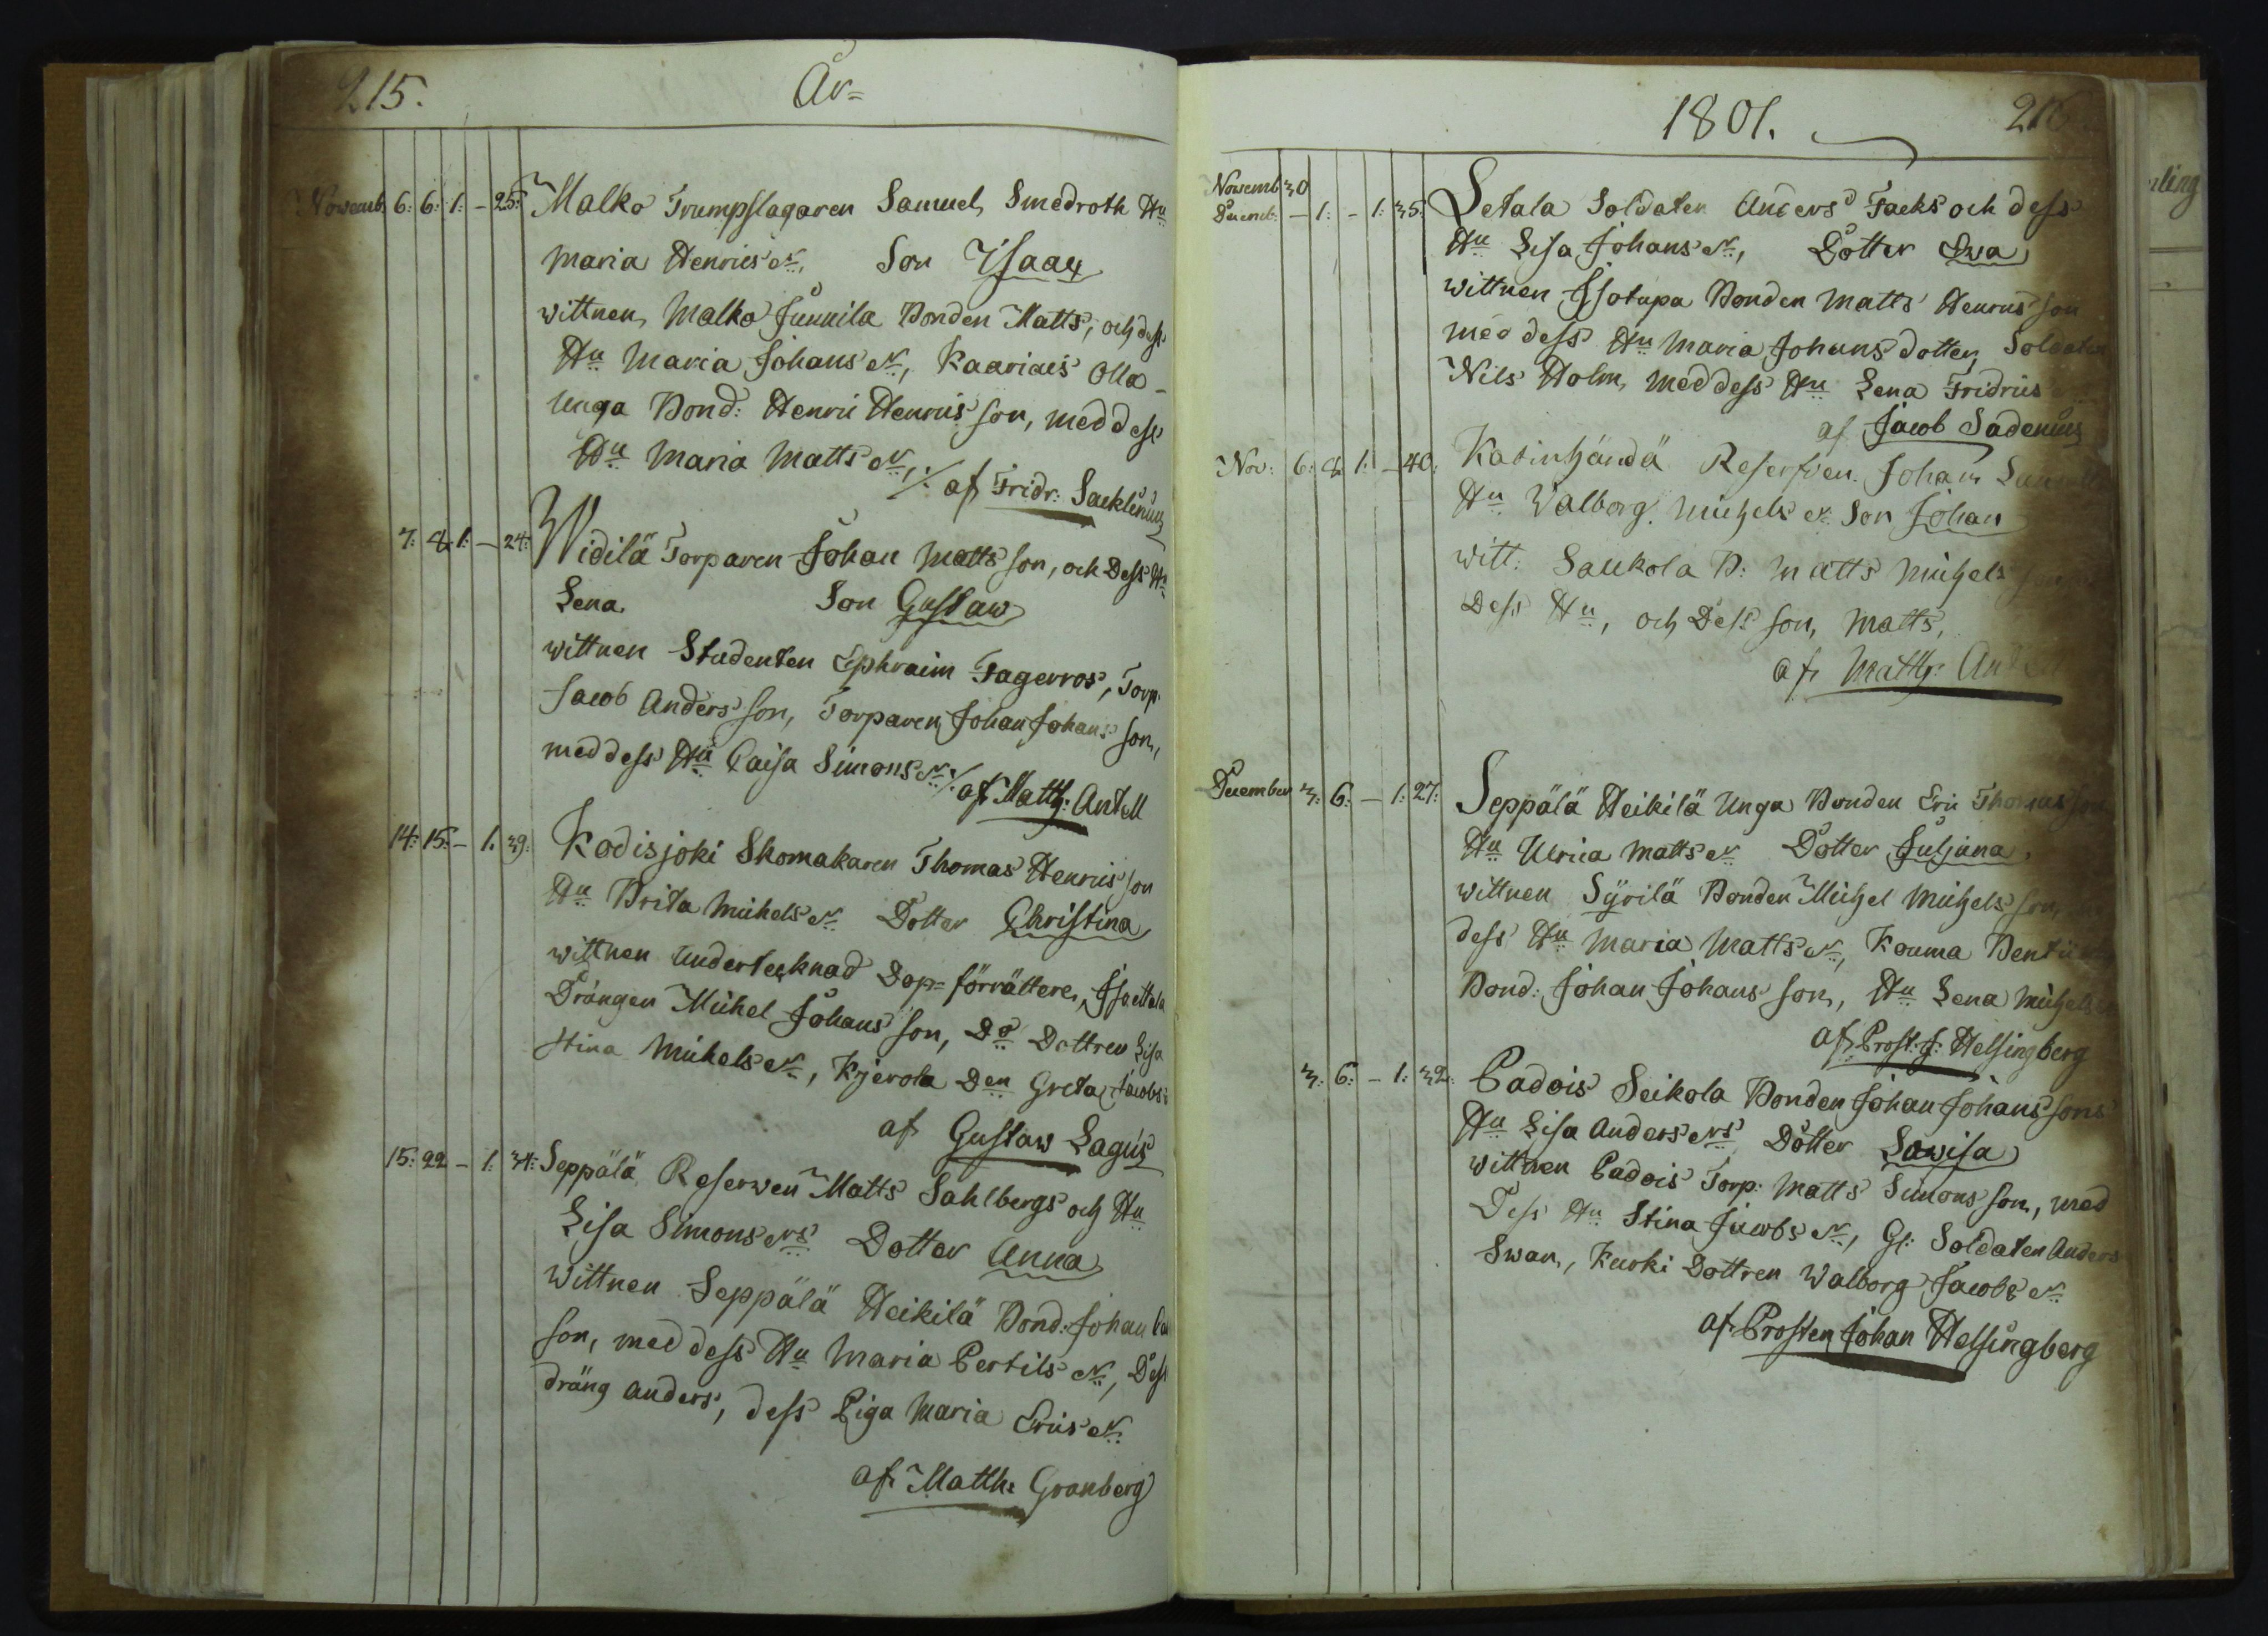 215.
År=
Novemb. 6: 6: 1: – 25: Malko Trumpslagaren Samuel Smedroth Hu
Maria Henrics dr. Son Isaac
wittnen, Malko Junnila Bonden Matts, och dess
Hu Maria Johans dr, Kaariais Olla
Unga Bond: Henric Henrics son, med dess
Hu Maria Matts dr, ./. af Fridr: Sacklinius
7: 8: 1: – 24: Widilä Torparen Johan Matts son, och Dess Hu
Lena. Son Gustaw
wittnen Studenten Ephraim Fagerros, Torp.
Jacob Anders son, Torparen Johan Johans son,
med dess Hu Caisa Simons dr ./. af Matth: Antell
14: 15: – 1: 39: Kodisjoki Skomakaren Thomas Henrics son
Hu Brita Michels dr Dotter Christina
wittnen undertecknad Dop=förrättere,
Drängen Michel Johans son, Do Dottren Lisa
Stina Michels dr, Kjerola Den Greta Jacobs
af Gustaw Lagus
15: 22 – 1: 34: Seppälä Reserwen Matts Sahlbergs och Hu
Lisa Simons drs Dotter Anna
Wittnen Seppälä Heikilä Bond: Johan
son, med dess Hu Maria Bertils dr, Dess
dräng Anders, dess Piga Maria Erics dr.
af Matth: Granberg
1801. 216
Novemb 30
Decemb: – 1: – 1: 35: Letala Soldaten Anders Facks och dess
Hu Lisa Johans dr, Dotter Ewa
wittnen Isotupa Bonden Matts Henrics son
med dess Hu Maria Johans dotter, Soldaten
Nils Holm, med dess Hu Lena Fridrics
af Jacob Sadenius
Nov: 6: 8 1: – 40: Katinhändä Reserfven Johan
Hu Walborg Michels dr Son Johan
witt: Saukola B: Matts Michels
Dess Hu, och Dess son, Matts,
af Matth: Antell
December 3: 6: – 1: 27: Seppälä Heikilä Unga Bonden Eric Thomas son
Hu Ulrica Matts dr Dotter Juljana
wittnen Syrilä Bonden Michel Michels son,
dess Hu Maria Matts dr, Kouma
Bond: Johan Johans son, Hu Lena Michels
af Prost: J: Helsingberg
3: 6: – 1: 32: Padois Seikola Bonden Johan Johans sons
Hu Lisa Anders drs Dotter Lowisa
Wittnen Padois Torp: Matts Simons son, med
Dess Hu Stina Jacobs dr, Gl: Soldaten Anders
Swan, Kurki Dottren Walborg Jacobs dr
af Prosten Johan Helsingberg